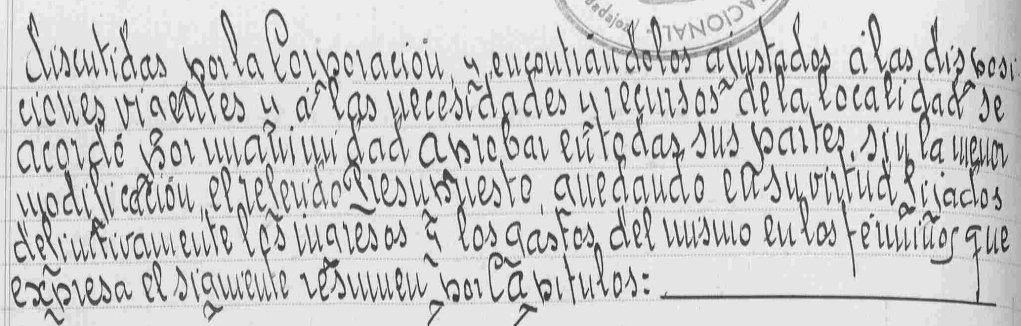 NACIONAL
Badajoz
Discutidas por la Corporación, y encontrándolos ajustados á las disposi
ciones vigentes y á las necesidades y recursos de la localidad se
acordó por unanimidad aprobar en todas sus partes, sin la menor
modificación, el referido Presupuesto, quedando en su virtud fijados
definitivamente los ingresos y los gastos del mismo en los términos que
expresa el siguiente resumen por Capitulos: